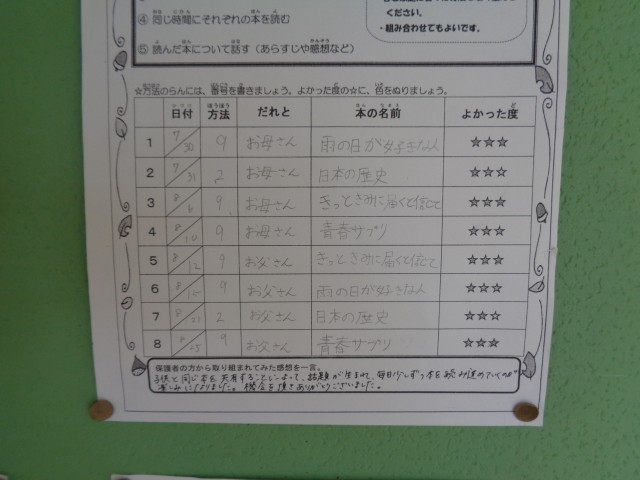 ください。
・組み合わせてもよいです。
④ 同じ時間にそれぞれの本を読む
⑤ 読んだ本について話す（あらすじや感想など）
☆方法のらんには、番号を書きましょう。よかった度の☆に、色をぬりましょう。
日付 方法 だれと 本の名前 よかった度
1 7/30 9 お母さん 雨の日が好きな人 ☆☆☆
2 7/31 2 お母さん 日本の歴史 ☆☆☆
3 8/6 9 お母さん きっときみに届くと信じて ☆☆☆
4 8/10 9 お母さん 青春サプリ ☆☆☆
5 8/12 9 お父さん きっときみに届くと信じて ☆☆☆
6 8/15 9 お父さん 雨の日が好きな人 ☆☆☆
7 8/21 2 お父さん 日本の歴史 ☆☆☆
8 8/25 9 お父さん 青春サプリ ☆☆☆
保護者の方から取り組まれてみた感想を一言。
子供と同じ本を共有することによって、話題が生まれて、毎日少しずつ本を読み進めていくのが
楽しみになりました。機会を頂きありがとうございました。